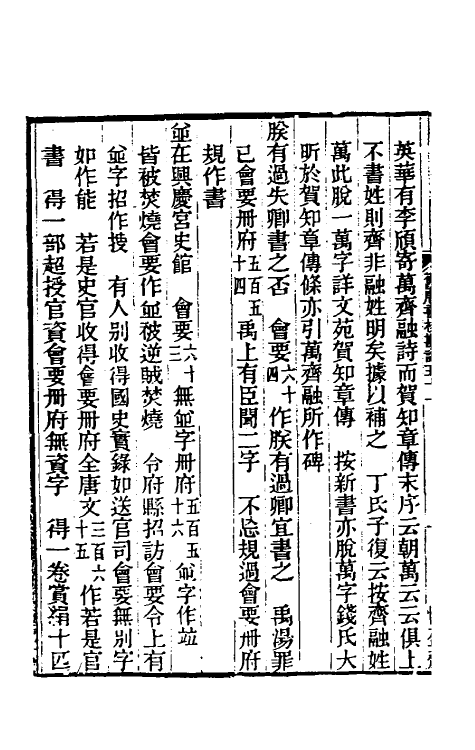 英華有李頎寄萬齊融詩而賀知章傳末序云朝萬云云俱上
不書姓則齊非融姓明矣據以補之　丁氏子復云按齊融姓
萬此脫一萬字詳文苑賀知章傳　按新書亦脫萬字錢氏大
昕於賀知章傳條亦引萬齊融所作碑
朕有過失卿書之否　會要六十四作朕有過卿宜書之　禹湯罪
已會要冊府五百五十四禹上有臣聞二字　不忘規過會要冊府
規作書
並在興慶宮史館　會要六十三無並字冊府五百五十六並字作竝
皆被焚燒會要作並被逆賊焚燒　令府縣招訪會要令上有
並字招作搜　有人別收得國史實錄如送官司會要無別字
如作能　若是史官收得會要冊府全唐文三百六十五作若是官
書　得一部超授官資會要冊府無資字　得一卷賞絹十匹